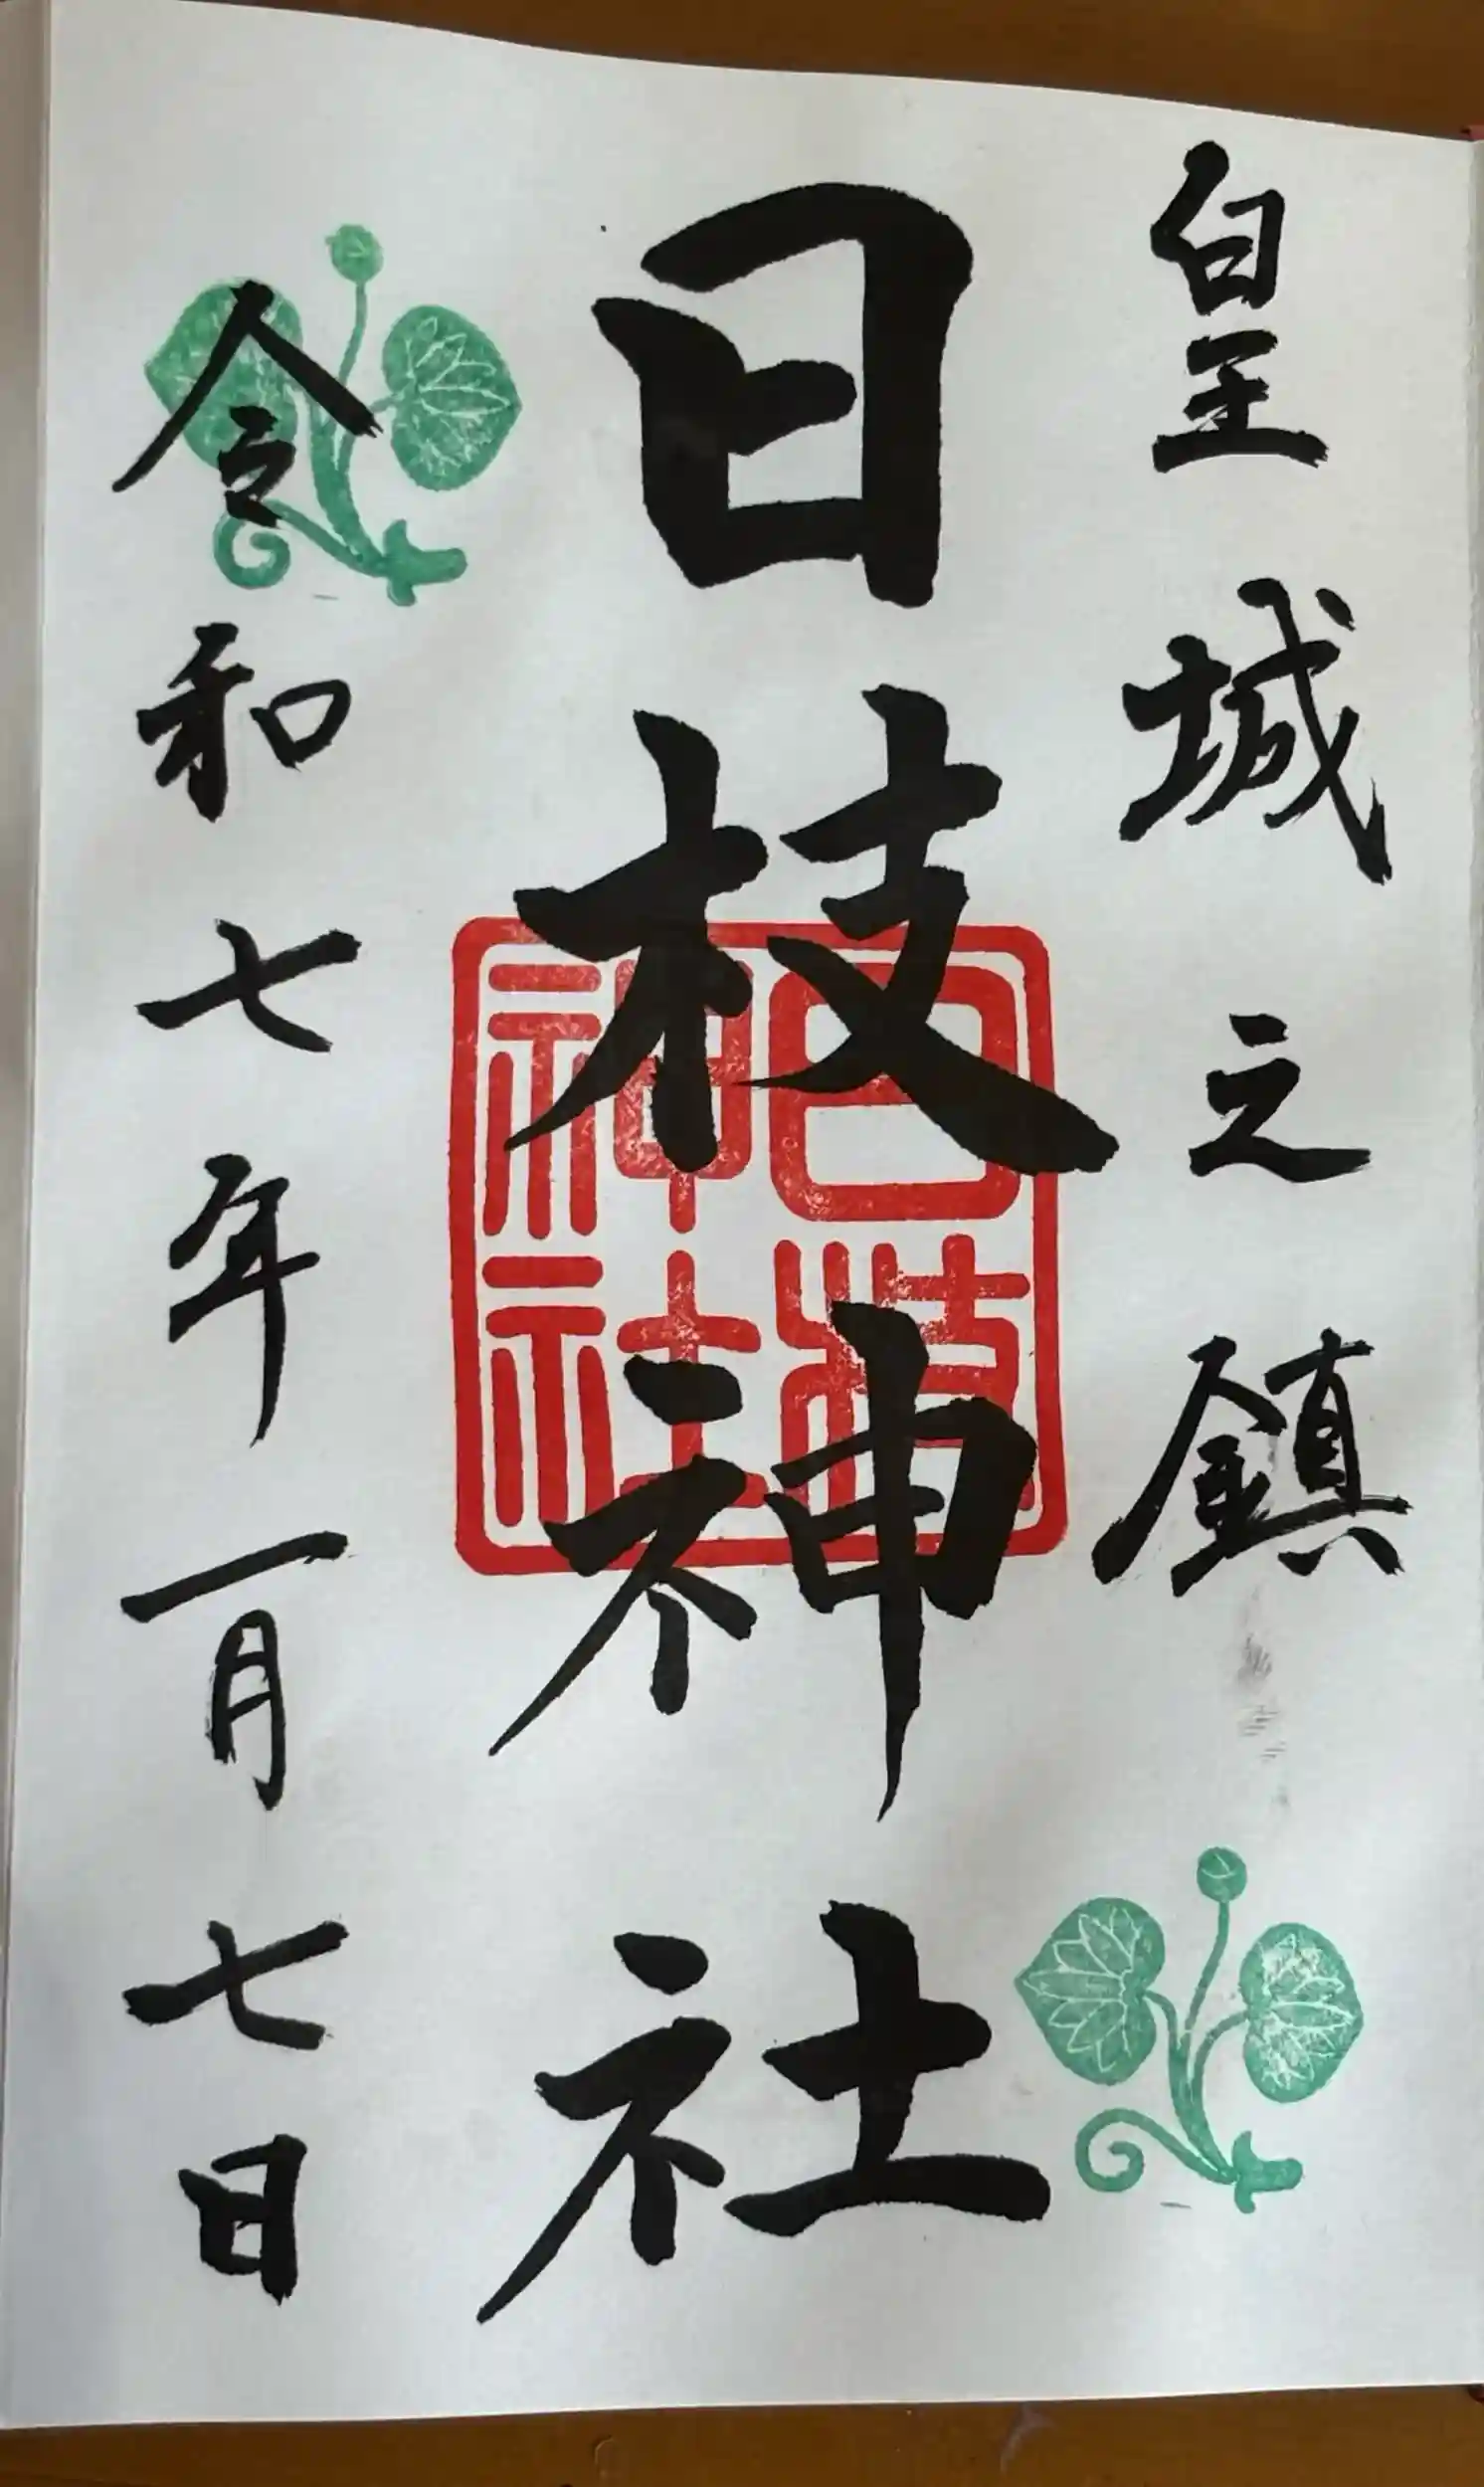 皇城之鎮
日枝神社
日枝神社
令和七年一月七日